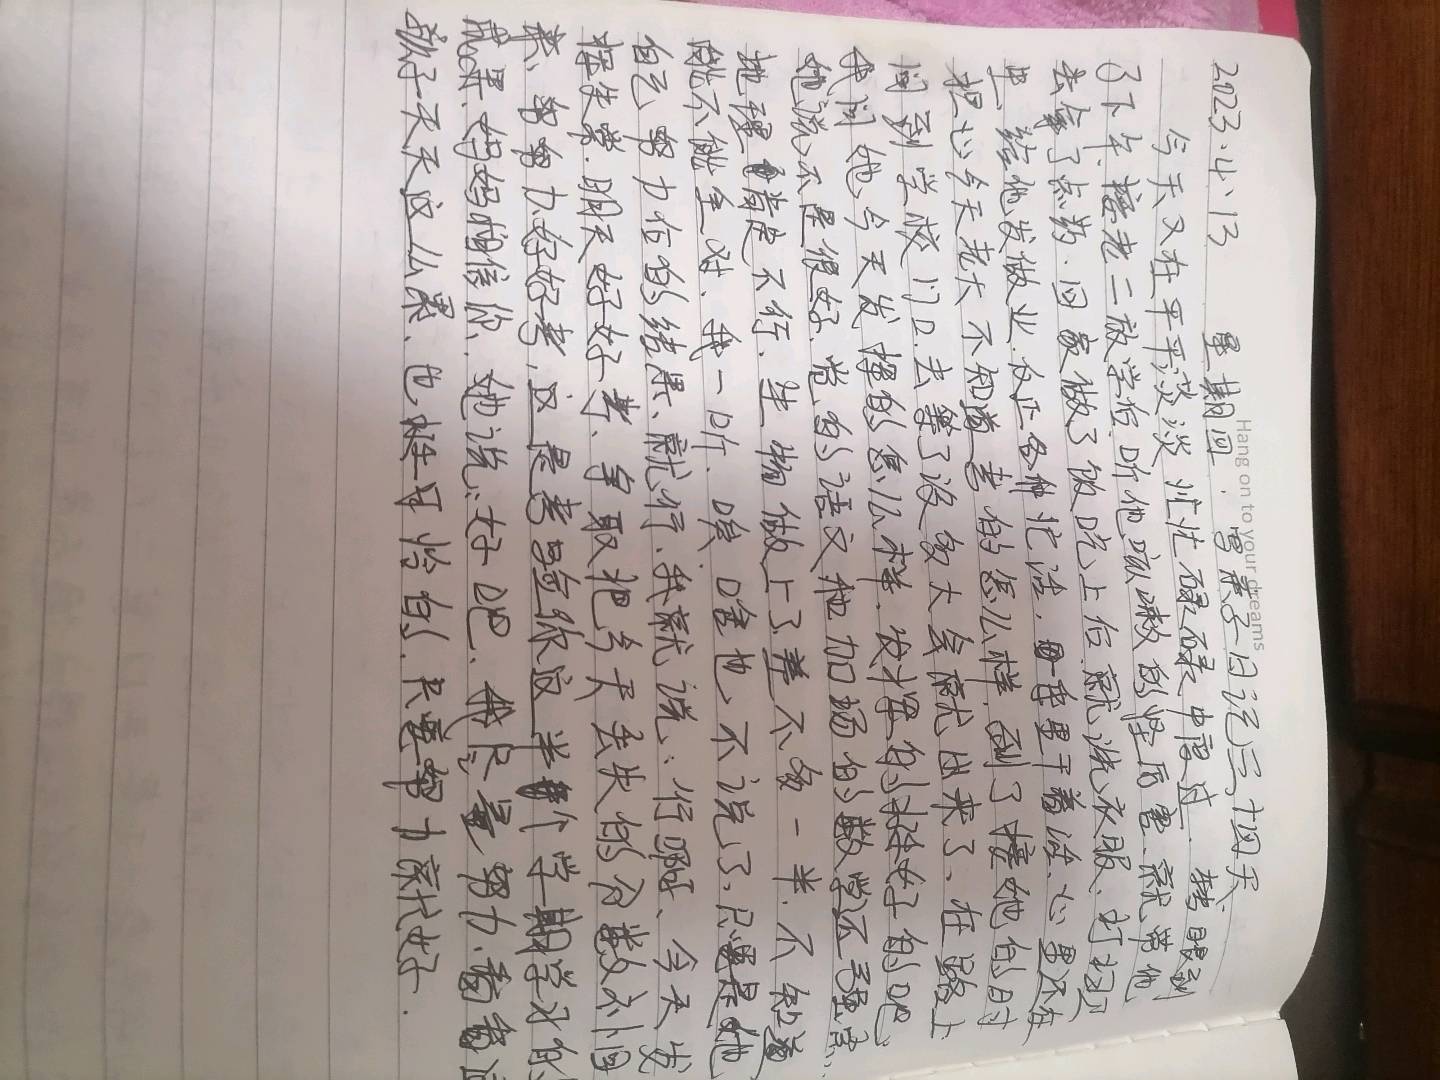 Hang on to your dreams
2023.4.13 星期四. 写亲子日记三十四天
今天又在平平淡淡忙忙碌碌中度过. 转眼到
了下午.接老二放学后.听他咳嗽的厉害.就带他
去拿了点药.回家做了饭吃上后.就洗衣服.打扫卫
生.给他发做业.反正各种忙活.手里干着活.心里不在
担心今天老大不知道考的怎么样.到了接她的时
间到学校门口.去等了没多大会就出来了.在路上
我问她今天发挥的怎么样.发挥的挺好的吧
她说不是很好.觉的语文和加场的数学还强点.
地理肯定不行.生物做上了差不多一半.不知道
能不能全对.我一听.唉啥也不说了.只要是她
自己努力后的结果、就行.我就说:行啊、今天发
挥失常.明天好好考、争取把今天丢失的分数补回
来、努努力.好好考.这是考验你这半个学期学习的
成果.妈妈相信你.她说:好吧.我尽量努力.看着
孩子天天这么累、也怪可怜的.只要努力就好.